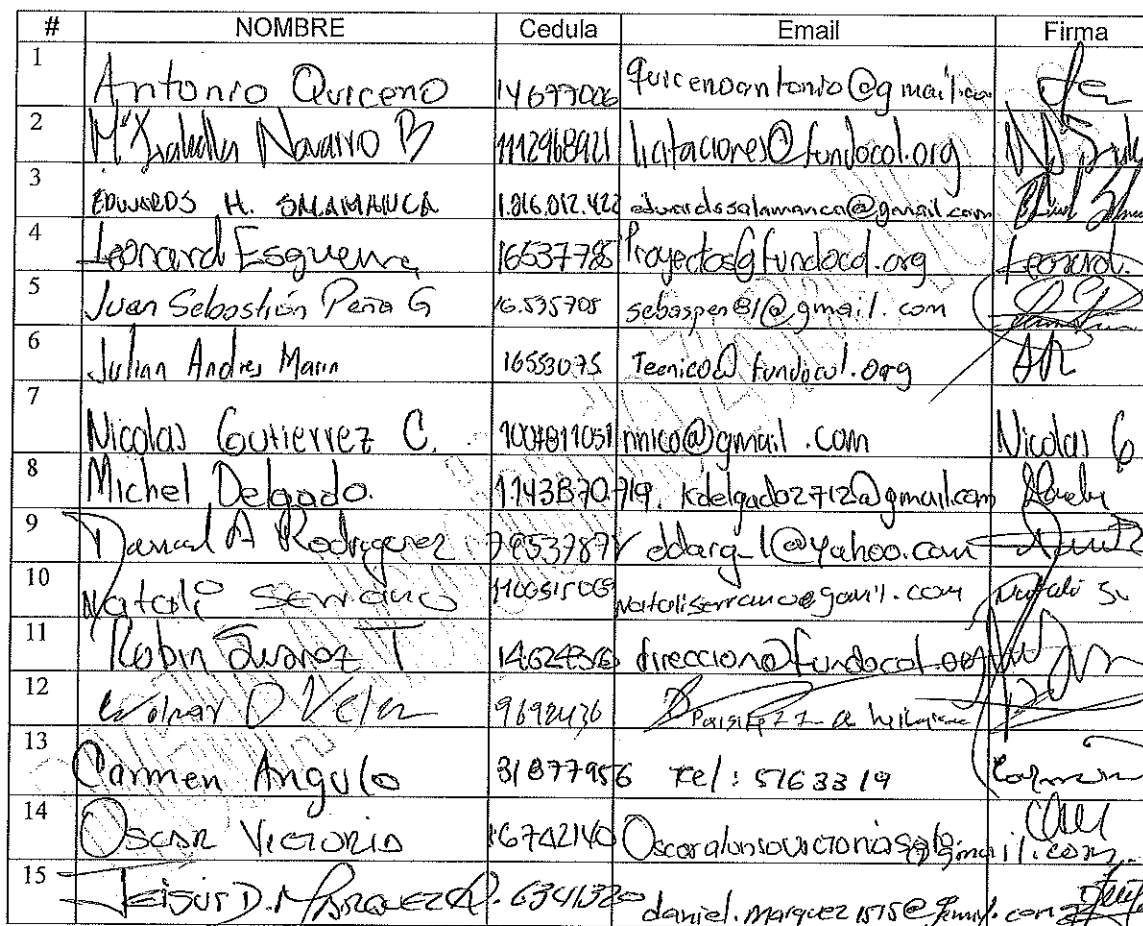 # NOMBRE Cedula Email Firma
1 Antonio Quiceno 14697006 quicenoantonio@gmail.com
2 Navarro B 1112968921 licitaciones@fundocol.org
3 EDWARDS H. SALAMANCA 1.016.012.422 edwardssalamanca@gmail.com
4 Leonard Esguerra 16537785 Proyectos@fundocol.org Leonard.
5 Juan Sebastián Peña G 16.535708 sebaspen81@gmail.com
6 Julian Andres Marin 16553075 Tecnico@fundocol.org
7 Nicolas Gutierrez C. 1007811051 nnico@gmail.com Nicolas G
8 Michel Delgado. 1143870719. kdelgado2712@gmail.com
9 Daniel A Rodriguez ddarg_1@yahoo.com
10 Natali Serrano Nataliserrano@gmail.com Natali
11 Robin T direccion@fundocol.org
12 9692436
13 Carmen Angulo 31877956 Tel: 5163319 Carmen
14 OSCAR VICTORIA 16742140
15 D. MARQUEZ 6341320 daniel.marquez1515@gmail.com